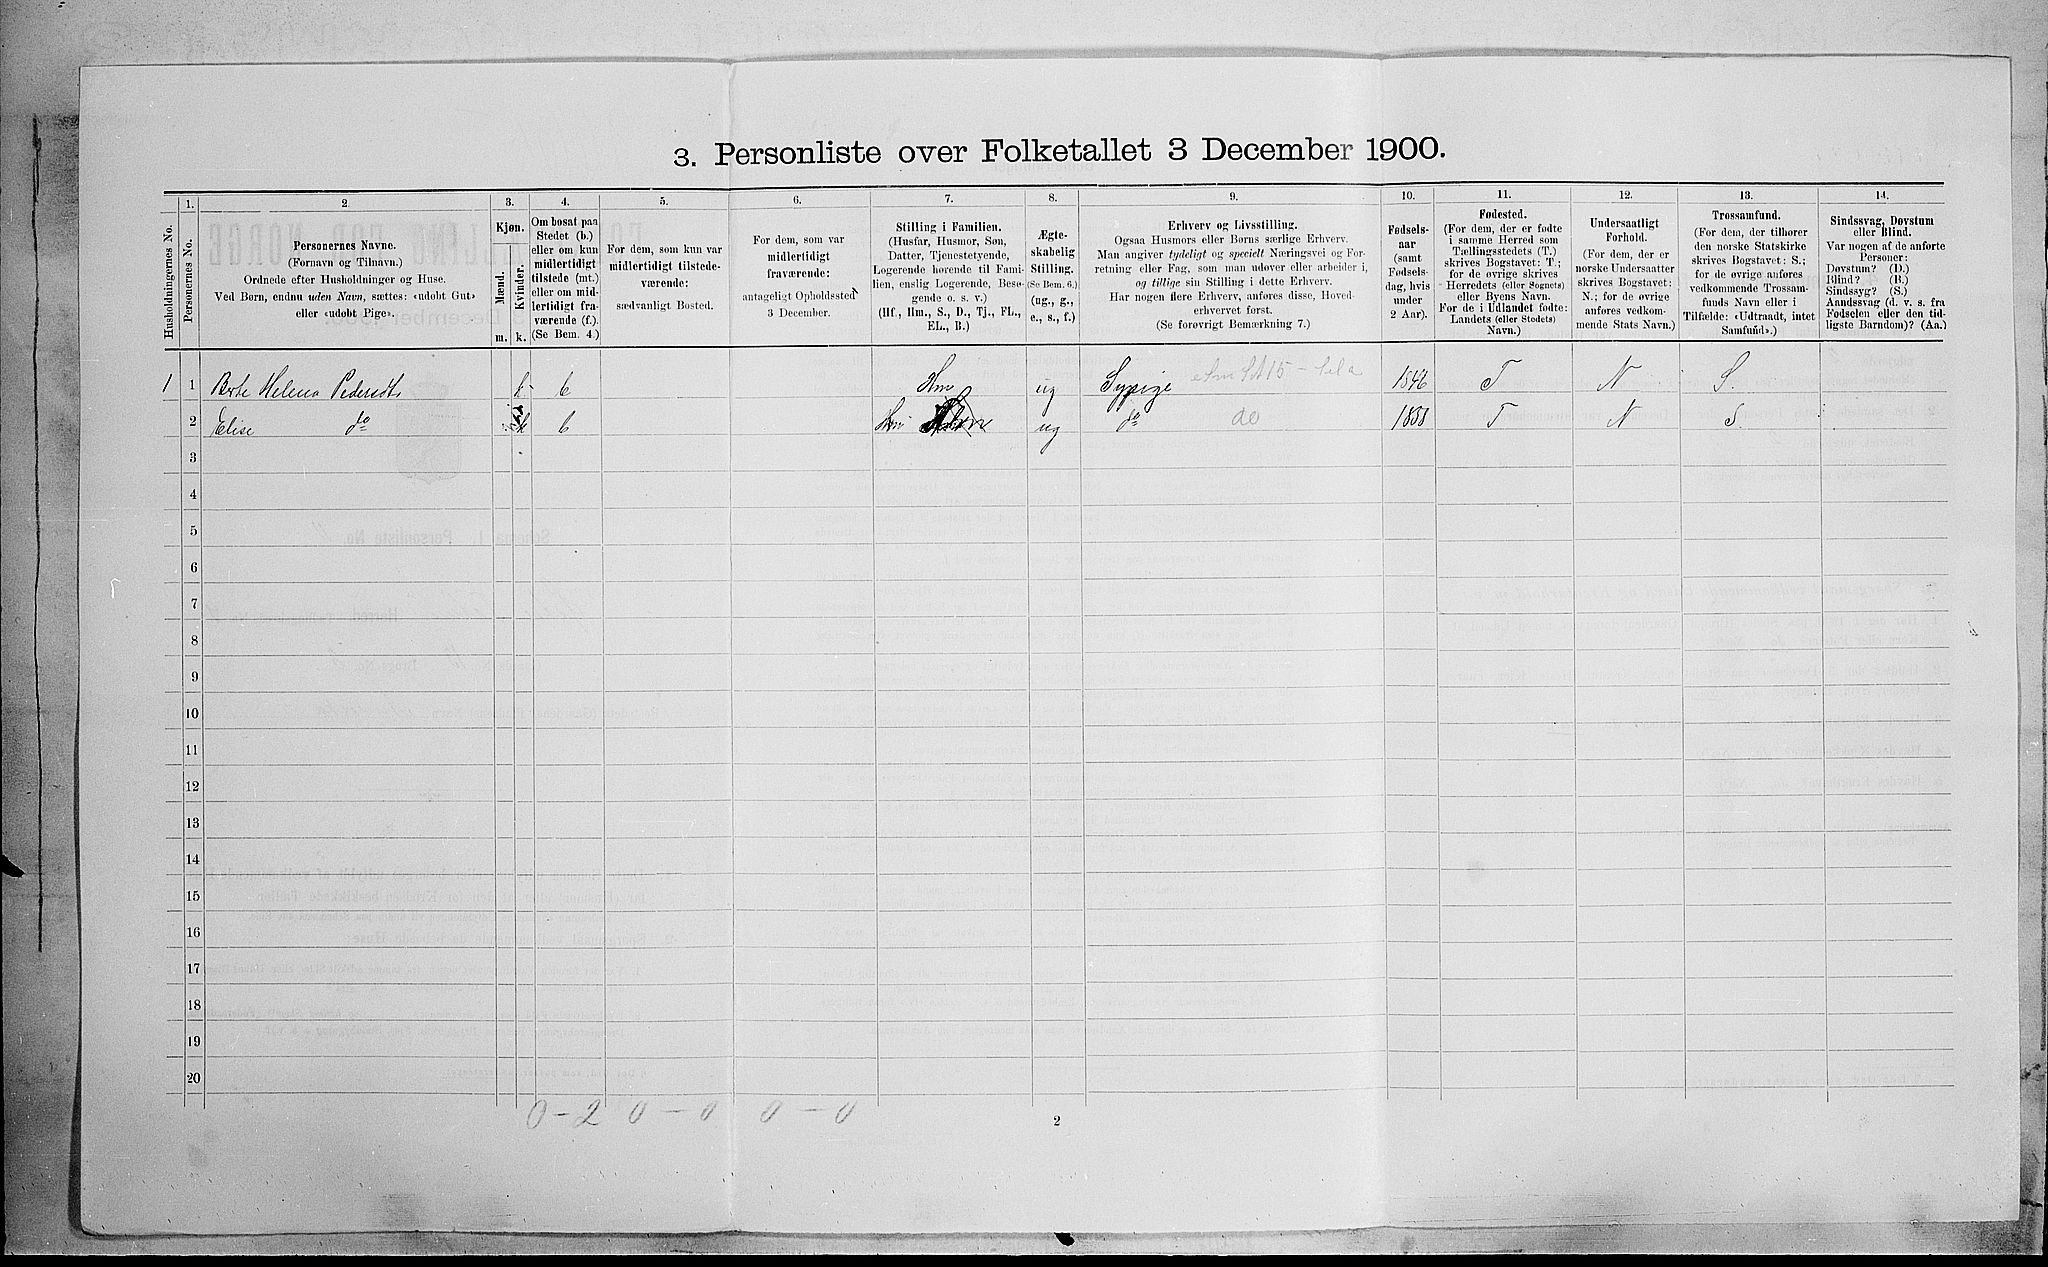 3. Personliste over Folketallet 3 December 1900.
Husholdningernes No.
1.
Personernes No.
2.
Personernes Navne.
(Fornavn og Tilnavn.)
Ordnede efter Husholdninger og Huse.
Ved Børn, endnu uden Navn, sættes: «udøbt Gut»
eller «udøbt Pige».
3.
Kjøn.
Mænd.
Kvinder.
m. k.
4.
Om bosat paa
Stedet (b.)
eller om kun
midlertidigt
tilstede (mt.)
eller om mid-
lertidigt fra-
værende (f.).
(Se Bem. 4.)
5.
For dem, som kun var
midlertidigt tilstede-
værende:
sædvanligt Bosted.
6.
For dem, som var
midlertidigt
fraværende:
antageligt Opholdssted
3 December.
7.
Stilling i Familien.
(Husfar, Husmor, Søn,
Datter, Tjenestetyende,
Logerende hørende til Fami-
lien, enslig Logerende, Besø-
gende o. s. v.)
(Hf., Hm., S., D., Tj., FL.,
EL., B.)
8.
Ægte-
skabelig
Stilling.
(Se Bem. 6.)
(ug., g.,
e., s., f.)
9.
Erhverv og Livsstilling.
Ogsaa Husmors eller Børns særlige Erhverv.
Man angiver tydeligt og specielt Næringsvei og For-
retning eller Fag, som man udøver eller arbeider i,
og tillige sin Stilling i dette Erhverv.
Har nogen flere Erhverv, anføres disse, Hoved-
erhvervet først.
(Se forøvrigt Bemærkning 7.)
10.
Fødsels-
aar
(samt
Fødsels-
dag, hvis
under
2 Aar).
11.
Fødested.
(For dem, der er fødte
i samme Herred som
Tællingsstedets (T.)
skrives Bogstavet: T.;
for de øvrige skrives
Herredets (eller Sognets)
eller Byens Navn.
For de i Udlandet fødte:
Landets (eller Stedets)
Navn.)
12.
Undersaatligt
Forhold.
(For dem, der er
norske Undersaatter
skrives Bogstavet:
N.; for de øvrige
anføres vedkom-
mende Stats Navn.)
13.
Trossamfund.
(For dem, der tilhører
den norske Statskirke
skrives Bogstavet: S.;
for de øvrige anføres
vedkommende Trossam-
funds Navn eller i
Tilfælde: «Udtraadt, intet
Samfund».)
14.
Sindssvag, Døvstum
eller Blind.
Var nogen af de anførte
Personer:
Døvstum? (D.)
Blind? (B.)
Sindssyg? (S.)
Aandssvag (d. v. s. fra
Fødselen eller den tid-
ligste Barndom)? (Aa.)
1 1 Berte Helena Pedersdt. k b Hm ug Sypige 1846 T N S.
2 Elise do k b Hm ug do do 1838 T N S
3
4
5
6
7
8
9
10
11
12
13
14
15
16
17
18
19
20
0 - 2 0 - 0 0 - 0
2